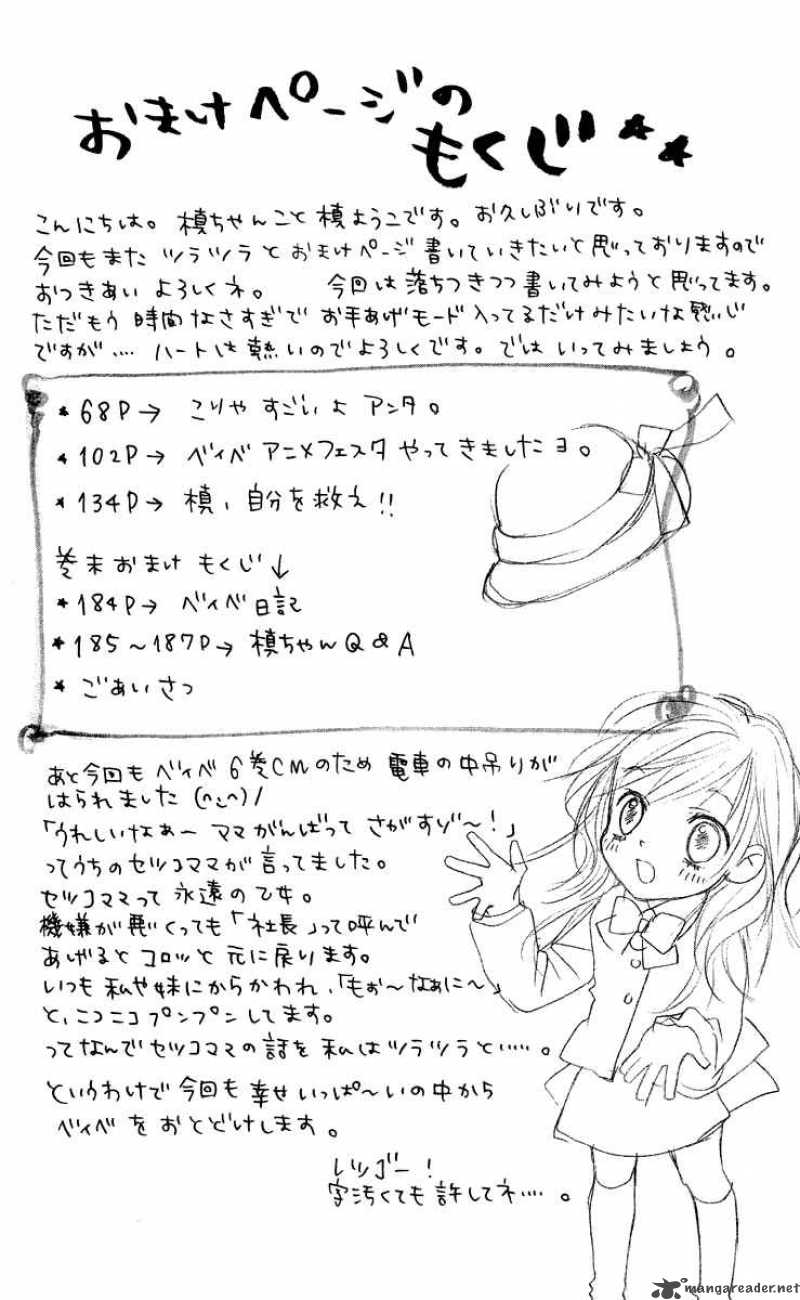 おまけページの
もくじ★★
こんにちは。槙ちゃんこと槙ようこです。お久しぶりです。
今回もまたツラツラとおまけページ書いていきたいと思っておりますので
おつきあいよろしくネ。 今回は落ちつきつつ書いてみようと思ってます。
ただもう時間なさすぎでお手あげモード入ってるだけみたいな感じ
ですが…. ハートは熱いのでよろしくです。ではいってみましょう。
★68P→ こりゃすごいよアンタ。
★102P→ ベイベアニメフェスタやってきましたヨ。
★134P→ 槙、自分を救え!!
巻末おまけもくじ↓
★184P→ ベイベ日記
★185~187P→ 槙ちゃんQ&A
★ごあいさつ
あと今回もベイベ6巻CMのため電車の中吊りが
はられました(^ᴗ^)/
「うれしいなぁ〜ママがんばってさがすゾ〜!」
ってうちのセツコママが言ってました。
セツコママって永遠の乙女。
機嫌が悪くっても「社長」って呼んで
あげるとコロッと元に戻ります。
いつも私や妹にからかわれ、「もぉ〜なぁに〜」
と、ニコニコプンプンしてます。
ってなんでセツコママの話を私はツラツラと……。
というわけで今回も幸せいっぱ〜いの中から
ベイベをおとどけします。
レツゴー!
字汚くても許してネ….。
mangareader.net